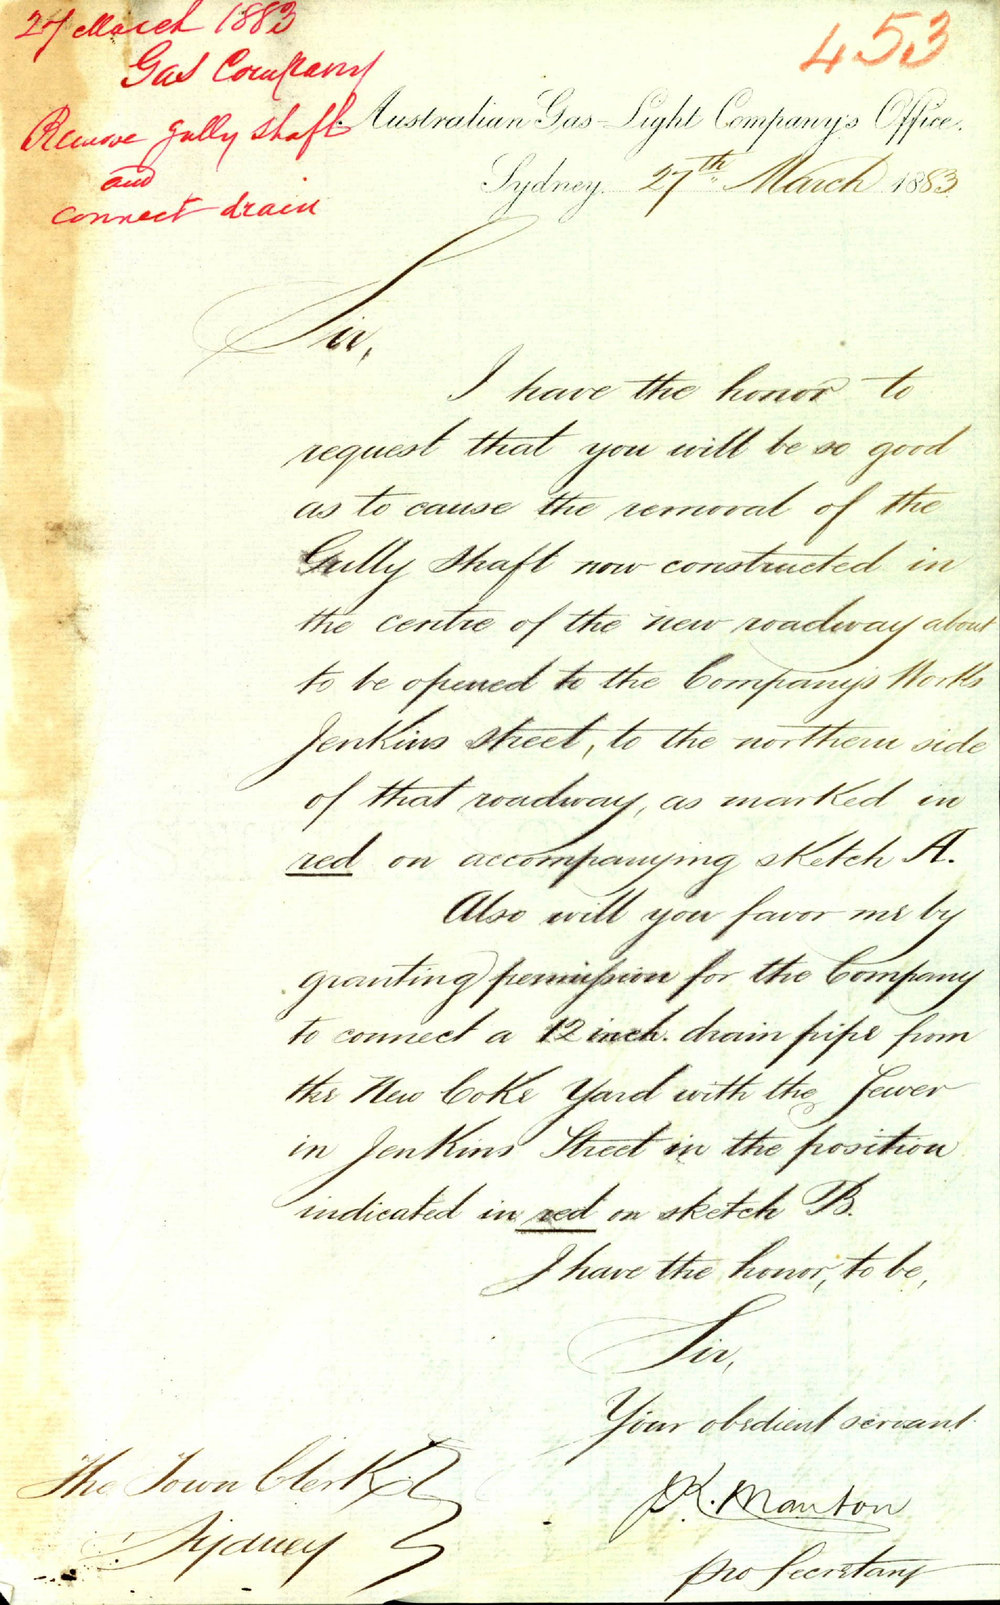 27 March 1883
Gas Company
Remove gully shaft
and
connect drain
453
Australian Gas-Light Company's Office.
Sydney. 27th March 1883
Sir,
I have the honor to
request that you will be so good
as to cause the removal of the
Gully Shaft now constructed in
the centre of the new roadway about
to be opened to the Company's Works
Jenkins street, to the northern side
of that roadway, as marked in
red on accompanying sketch A.
Also will you favor me by
granting permission for the Company
to connect a 12 inch. drain pipe from
the New Coke Yard with the Sewer
in Jenkins Street in the position
indicated in red on sketch B.
I have the honor, to be,
Sir,
Your obedient servant
J K. Manton
pro Secretary
The Town Clerk
Sydney